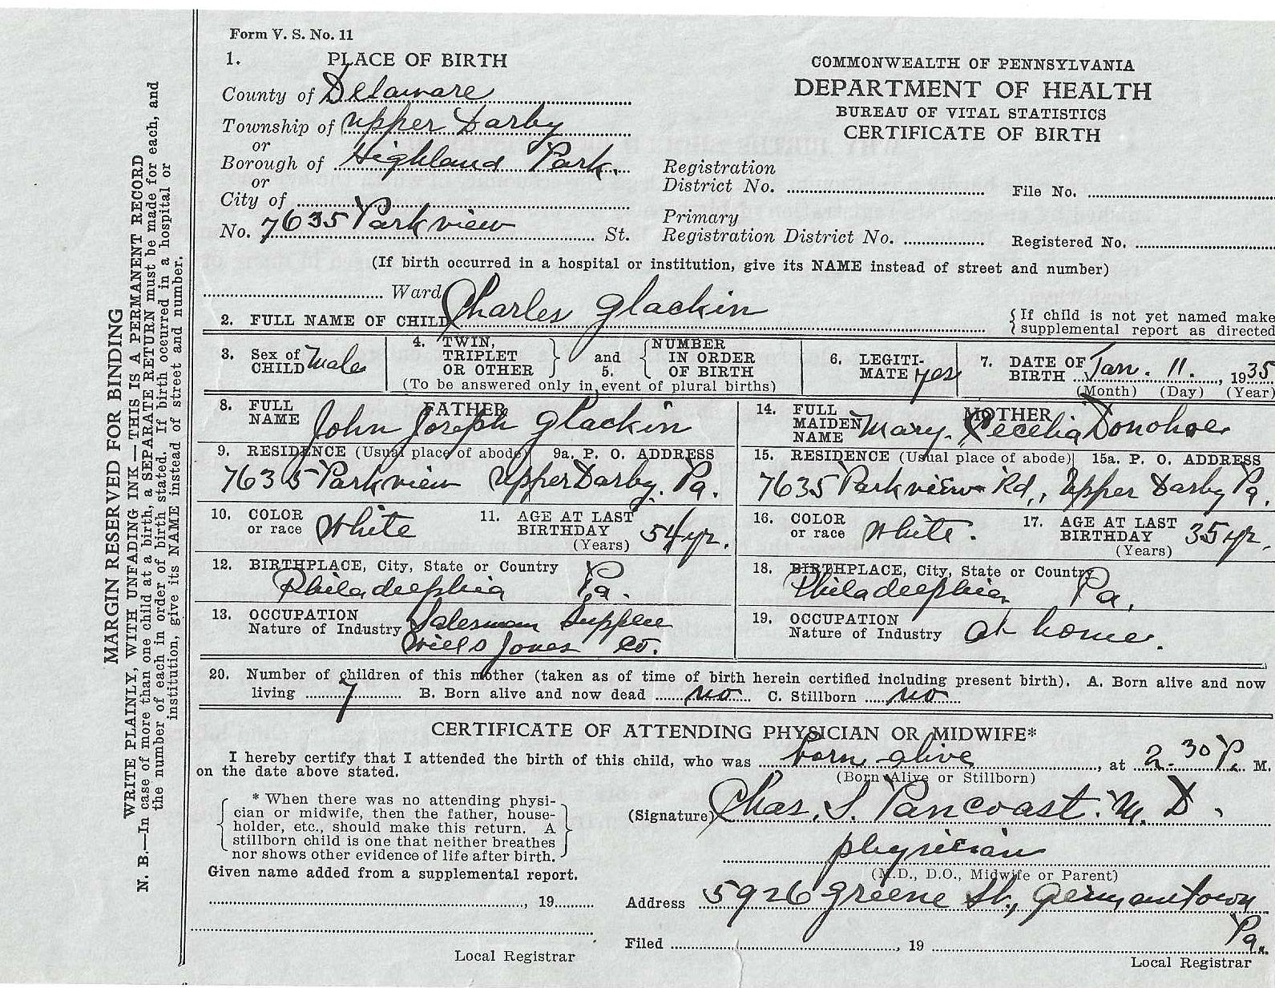 Form V. S. No. 11
1. PLACE OF BIRTH
County of Delaware
Township of Upper Darby
or
Borough of Highland Park.
or
City of
No. 7635 Parkview St.
COMMONWEALTH OF PENNSYLVANIA
DEPARTMENT OF HEALTH
BUREAU OF VITAL STATISTICS
CERTIFICATE OF BIRTH
Registration
District No. File No.
Primary
Registration District No. Registered No.
(If birth occurred in a hospital or institution, give its NAME instead of street and number)
Ward
2. FULL NAME OF CHILD Charles Glackin
{If child is not yet named make
{supplemental report as directed
3. Sex of CHILD Male
4. TWIN, TRIPLET OR OTHER } and 5. { NUMBER IN ORDER OF BIRTH
(To be answered only in event of plural births)
6. LEGITIMATE yes
7. DATE OF BIRTH Jan. 11., 1935
(Month) (Day) (Year)
FATHER
8. FULL NAME John Joseph Glackin
9. RESIDENCE (Usual place of abode) 9a. P. O. ADDRESS
7635 Parkview Upper Darby. Pa.
10. COLOR or race White 11. AGE AT LAST BIRTHDAY 54 yr.
(Years)
12. BIRTHPLACE, City, State or Country
Philadelphia Pa.
13. OCCUPATION
Nature of Industry Salesman
Jones Co.
MOTHER
14. FULL MAIDEN NAME Mary. Cecelia Donohoe
15. RESIDENCE (Usual place of abode) 15a. P. O. ADDRESS
7635 Parkview Rd., Upper Darby Pa.
16. COLOR or race White. 17. AGE AT LAST BIRTHDAY 35 yr.
(Years)
18. BIRTHPLACE, City, State or Country
Philadelphia Pa.
19. OCCUPATION
Nature of Industry at home.
20. Number of children of this mother (taken as of time of birth herein certified including present birth). A. Born alive and now
living 7 B. Born alive and now dead no C. Stillborn no
CERTIFICATE OF ATTENDING PHYSICIAN OR MIDWIFE*
I hereby certify that I attended the birth of this child, who was born alive, at 2.30 P. M.
on the date above stated. (Born Alive or Stillborn)
* When there was no attending physi-
cian or midwife, then the father, house-
holder, etc., should make this return. A
stillborn child is one that neither breathes
nor shows other evidence of life after birth.
Given name added from a supplemental report.
, 19
Local Registrar
(Signature) Chas. S. Pancoast. M. D.
physician
(M.D., D.O., Midwife or Parent)
Address 5926 Greene St., Germantown
Pa.
Filed , 19
Local Registrar
MARGIN RESERVED FOR BINDING
WRITE PLAINLY, WITH UNFADING INK—THIS IS A PERMANENT RECORD
N. B.—In case of more than one child at a birth, a SEPARATE RETURN must be made for each, and
the number of each in order of birth stated. If birth occurred in a hospital or
institution, give its NAME instead of street and number.